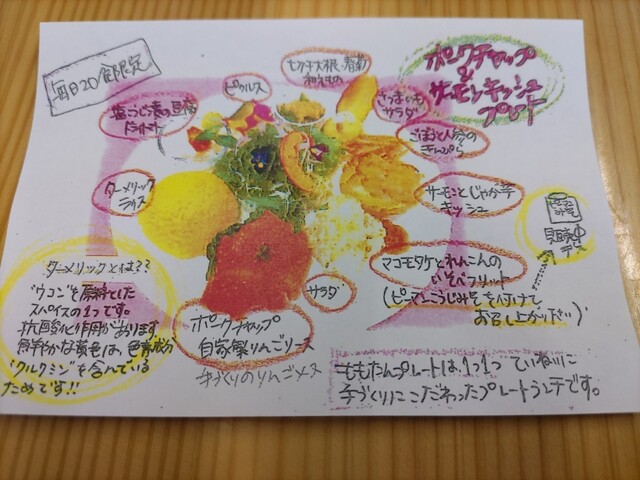 毎日20食限定
ポークチャップ
&
サーモンキッシュ
プレート
ピクルス
和えもの
さつまいも
サラダ
塩こうじ漬の豆腐
ごぼうと人参の
きんぴら
ターメリック
ライス
サーモンとじゃが芋
キッシュ
マコモタケとれんこんの
いそべフリット
(ピーマンこうじみそを付けて
お召し上がり下さい)
サラダ
ポークチャップ
自家製りんごソース
ターメリックとは??
"ウコン"を原料とした
スパイスの1つです。
抗酸化作用があります
鮮やかな黄色は、色素成分
"クルクミン"を含んでいる
ためです!!
ももたんプレートは、1つ1つていねいに
手づくりにこだわったプレートランチです。